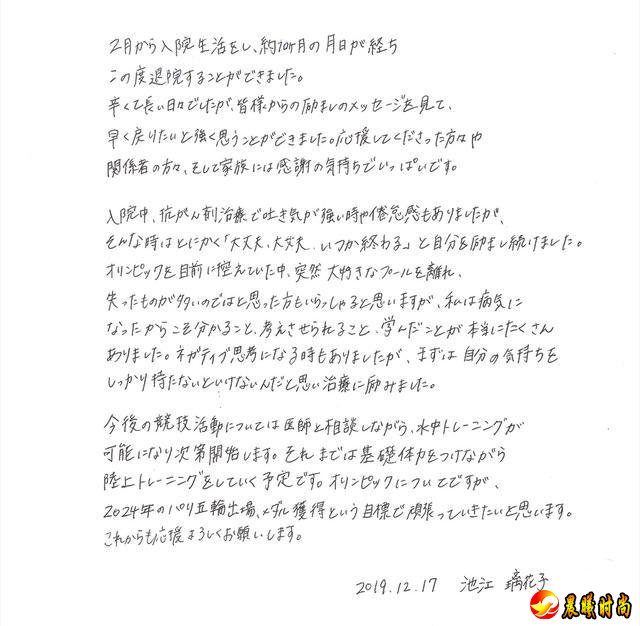 2月から入院生活をし、約10ヶ月の月日が経ち
この度退院することができました。
辛くて長い日々でしたが、皆様からの励ましのメッセージを見て、
早く戻りたいと強く思うことができました。応援してくださった方々や
関係者の方々、そして家族には感謝の気持ちでいっぱいです。
入院中、抗がん剤治療で吐き気が強い時や倦怠感もありましたが、
そんな時はとにかく「大丈夫、大丈夫、いつか終わる」と自分を励まし続けました。
オリンピックを目前に控えていた中、突然大好きなプールを離れ、
失ったものが多いのではと思った方もいらっしゃると思いますが、私は病気に
なったからこそ分かること、考えさせられること、学んだことが本当にたくさん
ありました。ネガティブ思考になる時もありましたが、まずは自分の気持ちを
しっかり持たないといけないんだと思い治療に励みました。
今後の競技活動については医師と相談しながら、水中トレーニングが
可能になり次第開始します。それまでは基礎体力をつけながら
陸上トレーニングをしていく予定です。オリンピックについてですが、
2024年のパリ五輪出場、メダル獲得という目標で頑張っていきたいと思います。
これからも応援よろしくお願いします。
2019.12.17 池江 璃花子
晨曦时尚